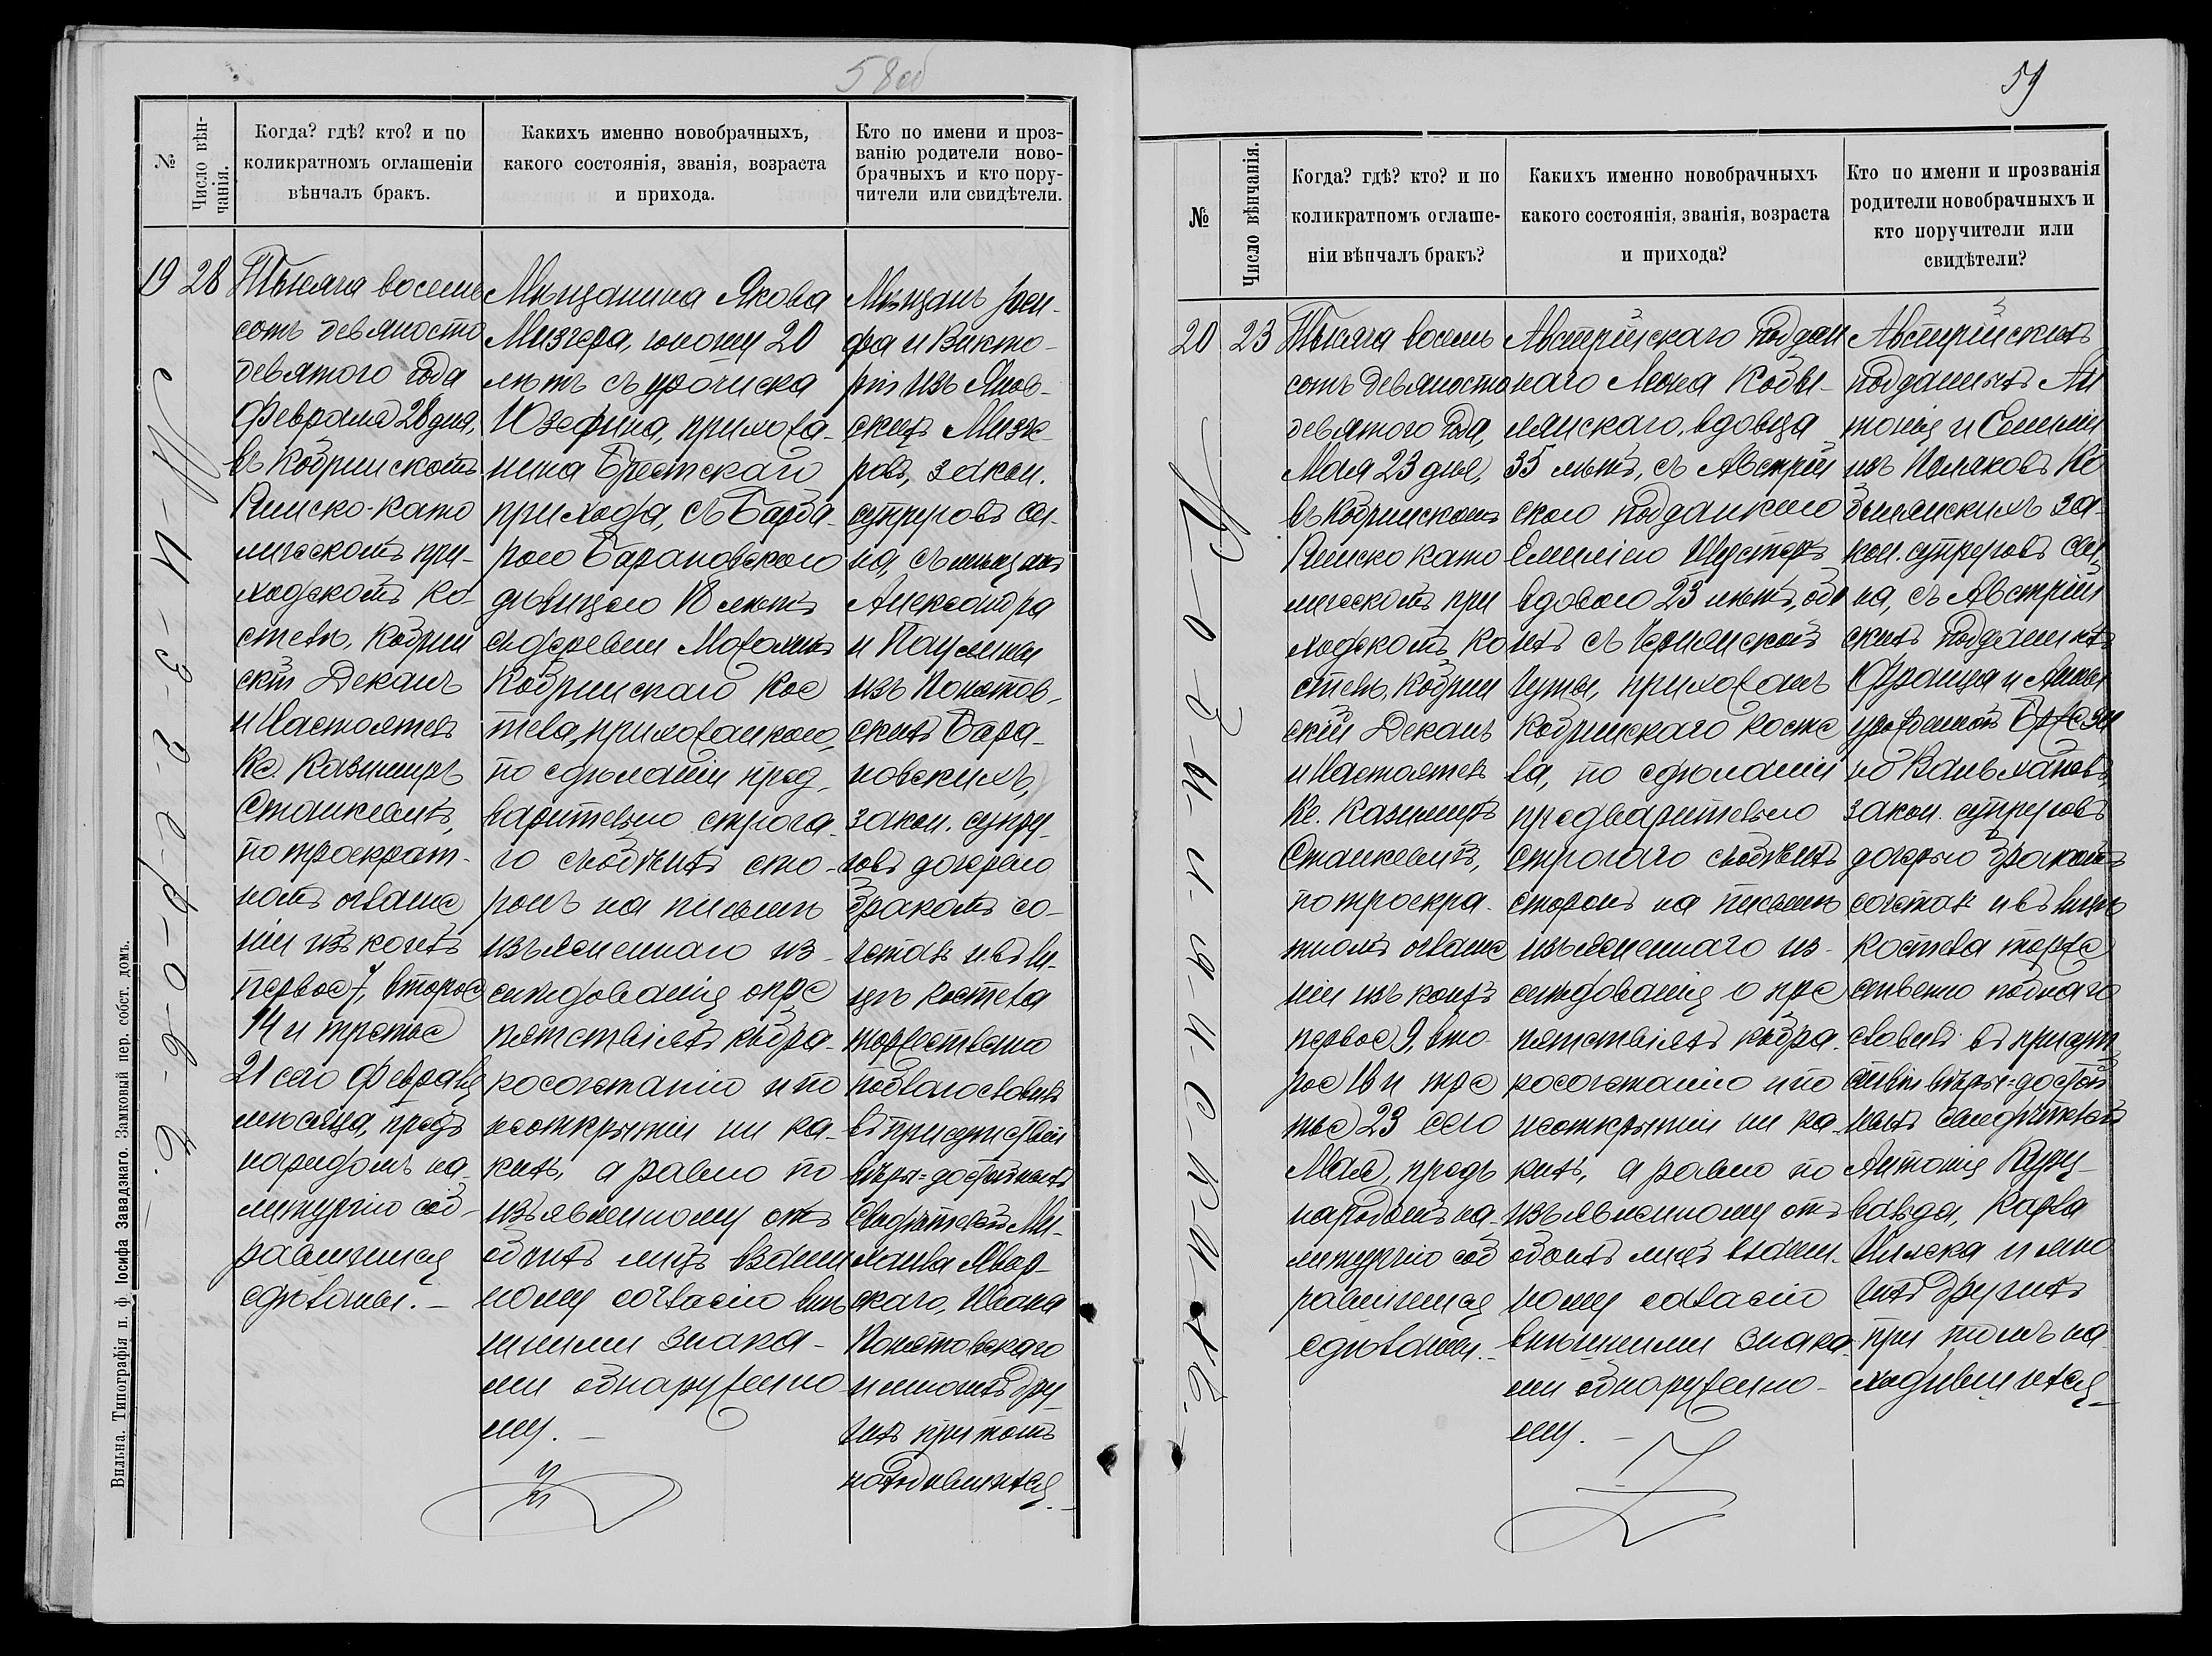 58об
№
Число вѣн-
чанія.
Когда? гдѣ? кто? и по
коликратномъ оглашеніи
вѣнчалъ бракъ.
Какихъ именно новобрачныхъ,
какого состоянія, званія, возраста
и прихода.
Кто по имени и проз-
ванію родители ново-
брачныхъ и кто пору-
чители или свидѣтели.
19
28
Тысяча восемь
сотъ девяносто
девятого года
Февраля 28 дня,
въ Кобринскомъ
Римско-като
лическомъ при-
ходскомъ Ко-
стелѣ, Кобрин
скій Деканъ
и Настоятель
Кс. Казимиръ
Станкевичъ,
по троекрат-
номъ оглаше
ніи изъ коихъ
первое 7, второе
14 и третье
21 сего Февраля
мѣсяца, предъ
народомъ на
литургію соб-
равшимся
сдѣланы. –
Мѣщанина Якова
Мизгера, юношу 20
лѣтъ съ урочиска
Юзефина, прихожа-
нина Брестскаго
прихода, съ Барба-
рою Барановскою
дѣвицею 18 лѣтъ
съ деревни
Кобринскаго Кос
тела, прихожанкою,
по сдѣланіи пред-
варительно строга-
го съ обѣихъ сто-
ронъ на письмѣ
изъясненнаго из-
слѣдованія о пре
пятствіяхъ къ бра-
косочетанію и по
неоткрытіи ни ка-
кихъ, а равно по
изъявленному отъ
обоихъ лицъ взаим
ному согласію внѣ
шними знака-
ми обнаруженно
му. –
Мѣщанъ Іоси-
фа и Викто-
ріи изъ Янов-
скихъ Мизге-
ровъ, закон.
супруговъ сы-
на, съ мѣщанъ
Александра
и Паулины
изъ Понятов-
скихъ Бара-
новскихъ,
закон. супру-
говъ дочерью
бракомъ со-
четалъ и въ ли-
цѣ костела
торжественно
поблагословилъ
въ присутствіи
вѣры-достойныхъ
Свидѣтелей Ми-
хаила Явор-
скаго, Ивана
Понятовскаго
и многихъ дру
гихъ при томъ
находившихся. –
М-и-з-г-е-р-о-в-ъ. –
Вильна. Типографія п. ф. Іосифа Завадзкаго. Замковый пер. собст. домъ.
59
№
Число вѣнчанія.
Когда? гдѣ? кто? и по
коликратномъ оглаше-
ніи вѣнчалъ бракъ?
Какихъ именно новобрачныхъ
какого состоянія, званія, возраста
и прихода?
Кто по имени и прозванія
родители новобрачныхъ и
кто поручители или
свидѣтели?
20
23
Тысяча восемь
сотъ девяносто
девятого года,
Мая 23 дня,
въ Кобринскомъ
Римско като
лическомъ при
ходскомъ Ко
стелѣ, Кобрин
скій Деканъ
и Настоятель
Кс. Казимиръ
Станкевичъ,
по троекра-
тномъ оглаше
ніи изъ коихъ
первое 9, вто-
рое 16 и тре
тье 23 сего
Мая, предъ
народомъ на
литургію соб
равшимся
сдѣланы. –
Австрійскаго поддан
наго Леона Кобы-
лянскаго, вдовца
35 лѣтъ, съ Австрій
скою подданкою
Емиліею Шустеръ
вдовою 23 лѣтъ, обо
ихъ съ Чернянской
Гуты, прихожанъ
Кобринскаго косте
ла, по сдѣланіи
предварительно
строгаго съ обѣихъ
сторонъ на письмѣ
изъясненнаго из-
слѣдованія о пре
пятствіяхъ къ бра
косочетанію и по
неоткрытіи ни ка-
кихъ, а равно по
изъявленному отъ
обоихъ лицъ взаим-
ному согласію
внѣшними знака
ми обнаруженно-
му. –
Австрійскихъ
подданныхъ Ан
тонія и Емиліи
изъ Поляковъ Ко
былянскихъ за-
кон. супруговъ сы
на, съ Австрій
скихъ подданныхъ
Франца и Анны
урожденной
закон. супруговъ
дочерью бракомъ
сочеталъ и въ лицѣ
костела торже
ственно поблаго
словилъ въ присут
ствіи вѣры-достой
ныхъ свидѣтелей
Антонія
Карла
и мно
гихъ другихъ
при томъ на
ходившихся. –
К-о-б-ы-л-я-н-с-к-и-хъ. –